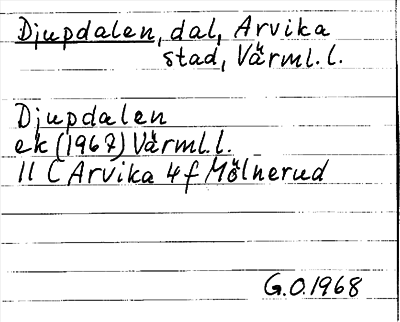 Djupdalen, dal, Arvika
stad, Värml. l.
Djupdalen
ek (1967) Värml. l.
11 C Arvika 4 f Mölnerud
G.O. 1968